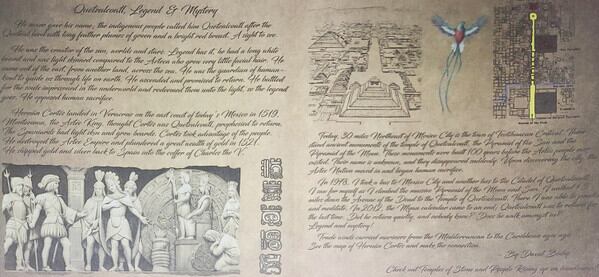 Quetzalcoatl, Legend & Mystery
He never gave his name, the indigenous people called him Quetzalcoatl after the
Quetzal bird with long feather plumes of green and a bright red breast. A sight to see.
He was the creator of the sun, worlds and stars. Legend has it, he had a long white
beard and was light skinned compared to the Aztecs who grew very little facial hair. He
came out of the east, from another land, across the sea. He was the guardian of human-
kind to guide us through life on earth. He ascended and promised to return. He battled
for the souls imprisoned in the underworld and redeemed them unto the light, so the legend
goes. He opposed human sacrifice.
Hernán Cortés landed in Veracruz on the east coast of today's Mexico in 1519.
Montezuma, the Aztec King, thought Cortés was Quetzalcoatl, prophesied to return.
The Spaniards had light skin and grew beards. Cortés took advantage of the people.
He destroyed the Aztec Empire and plundered a great wealth of gold in 1521.
He shipped gold and silver back to Spain into the coffer of Charles the V.
Today, 30 miles Northeast of Mexico City is the town of Teotihuacan
stand ancient monuments of the temple of Quetzalcoatl, the Pyramid of the Sun and the
Pyramid of the Moon. These monuments were built 100 years before the Aztec
Their name is unknown, and they disappeared suddenly. Upon discovering the city, the
Aztec Nation moved in and began human sacrifice.
In 1978, I took a bus to Mexico City and another bus to the Citadel of Quetzalcoatl.
I saw for myself as I climbed the massive Pyramids of the Moon and Sun. I walked
miles down the Avenue of the Dead to the Temple of Quetzalcoatl. There I was able to
and meditate. In 2012, the Mayan calendar came to an end, Quetzalcoatl was to return for
the last time. Did he return quietly, and nobody knew? Does he walk amongst us?
Legend and mystery!
Trade winds carried mariners from the Mediterranean to the Caribbean ages ago.
See the map of Hernán Cortés and make the connection.
By David
Check out Temples of Stone and People Rising up on